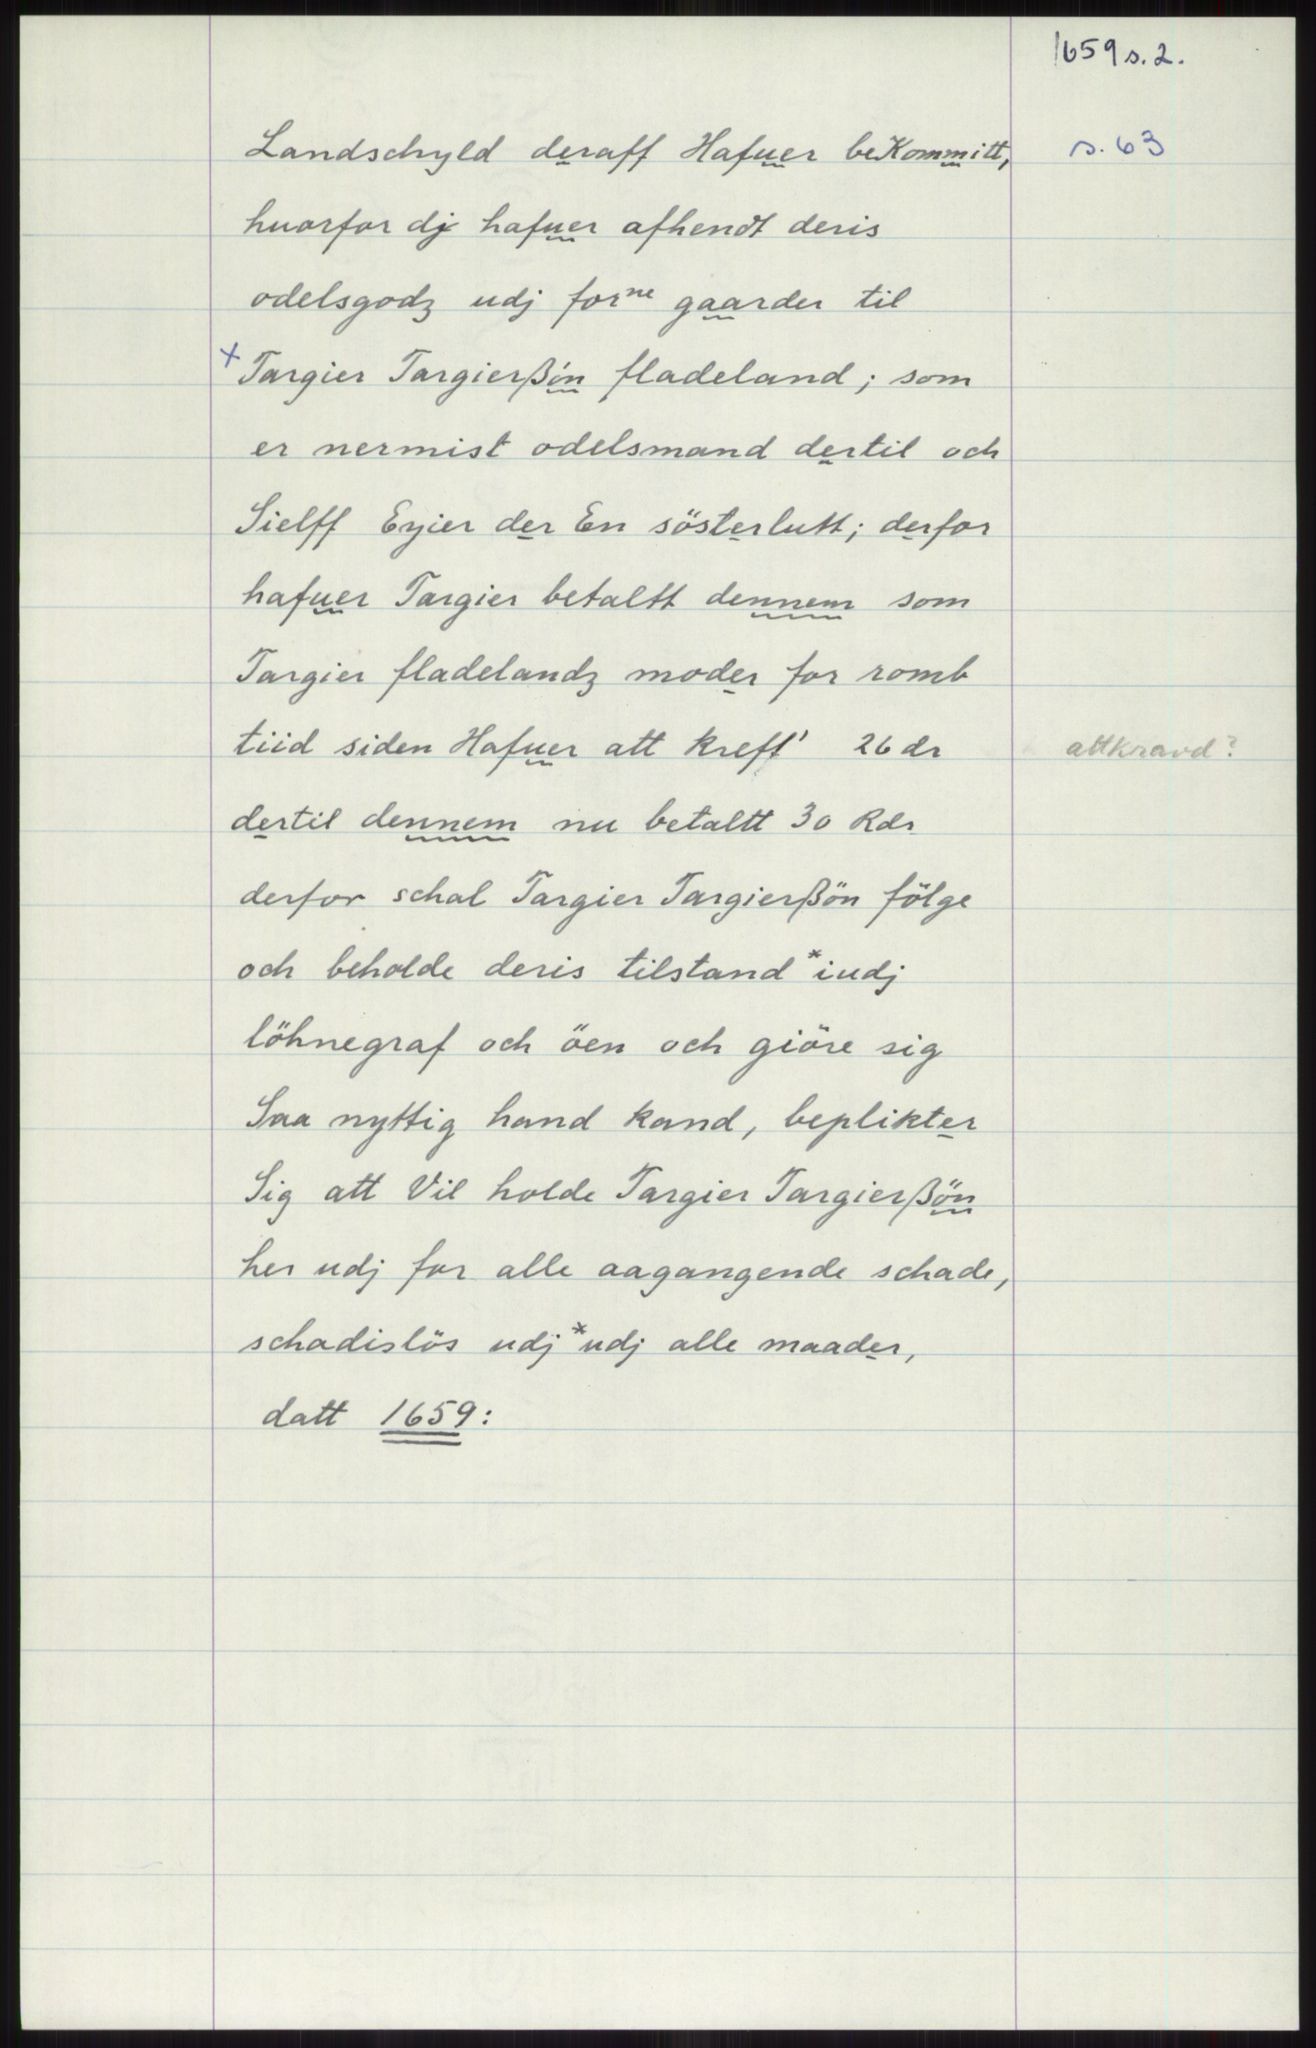 1659 s. 2.
Landschyld deraff Hafuer beKommitt, s. 63
huorfor dj hafuer afhendt deris
odelsgodz udj forne gaarder til
x Targier Targierßön fladeland; som
er nermist odelsmand dertil och
Sielff Eyier der En sösterlutt; derfor
hafuer Targier betaltt dennem som
Targier fladelandz moder for romb
tiid siden Hafuer att kreft' 26 dr attkravd?
dertil dennem nu betaltt 30 Rdr
derfor schal Targier Targierßön fölge
och beholde deris tilstand *iudj
löhnegraf och öen och giöre sig
Saa nyttig hand kand, beplikter
Sig att Vil holde Targier Targierßön
her udj for alle aagangende schade,
schadislös udj *udj alle maader,
datt 1659: